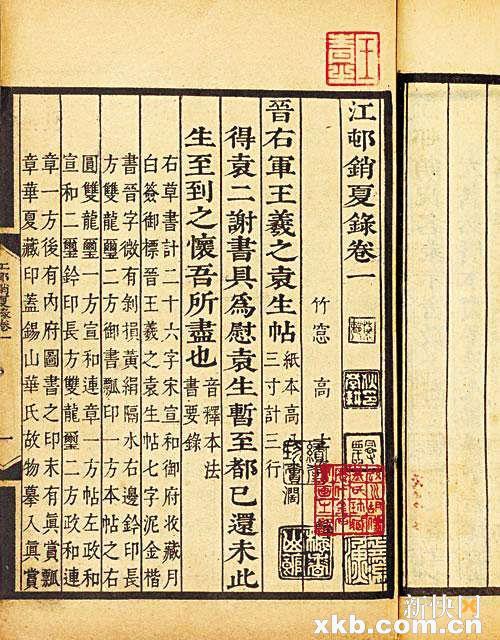 江邨銷夏錄卷一
竹窻　高
晉右軍王羲之袁生帖
紙本高
三寸計三行
得袁二謝書具為慰袁生暫至都已還未此
生至到之懷吾所盡也
音釋本法
書要錄
右草書計二十六字宋宣和御府收藏月
白簽御標晉王羲之袁生帖七字泥金楷
書晉字微有剝損黃絹隔水右邊鈐印長
方雙龍璽二方御書瓢印一方本帖之右
圓雙龍璽一方宣和連章一方帖左政和
宣和二璽鈐印長方雙龍璽二方政和連
章一方後有內府圖書之印末有眞賞瓢
章華夏藏印蓋錫山華氏故物摹入眞賞
江邨銷夏錄卷一
新快网
xkb.com.cn